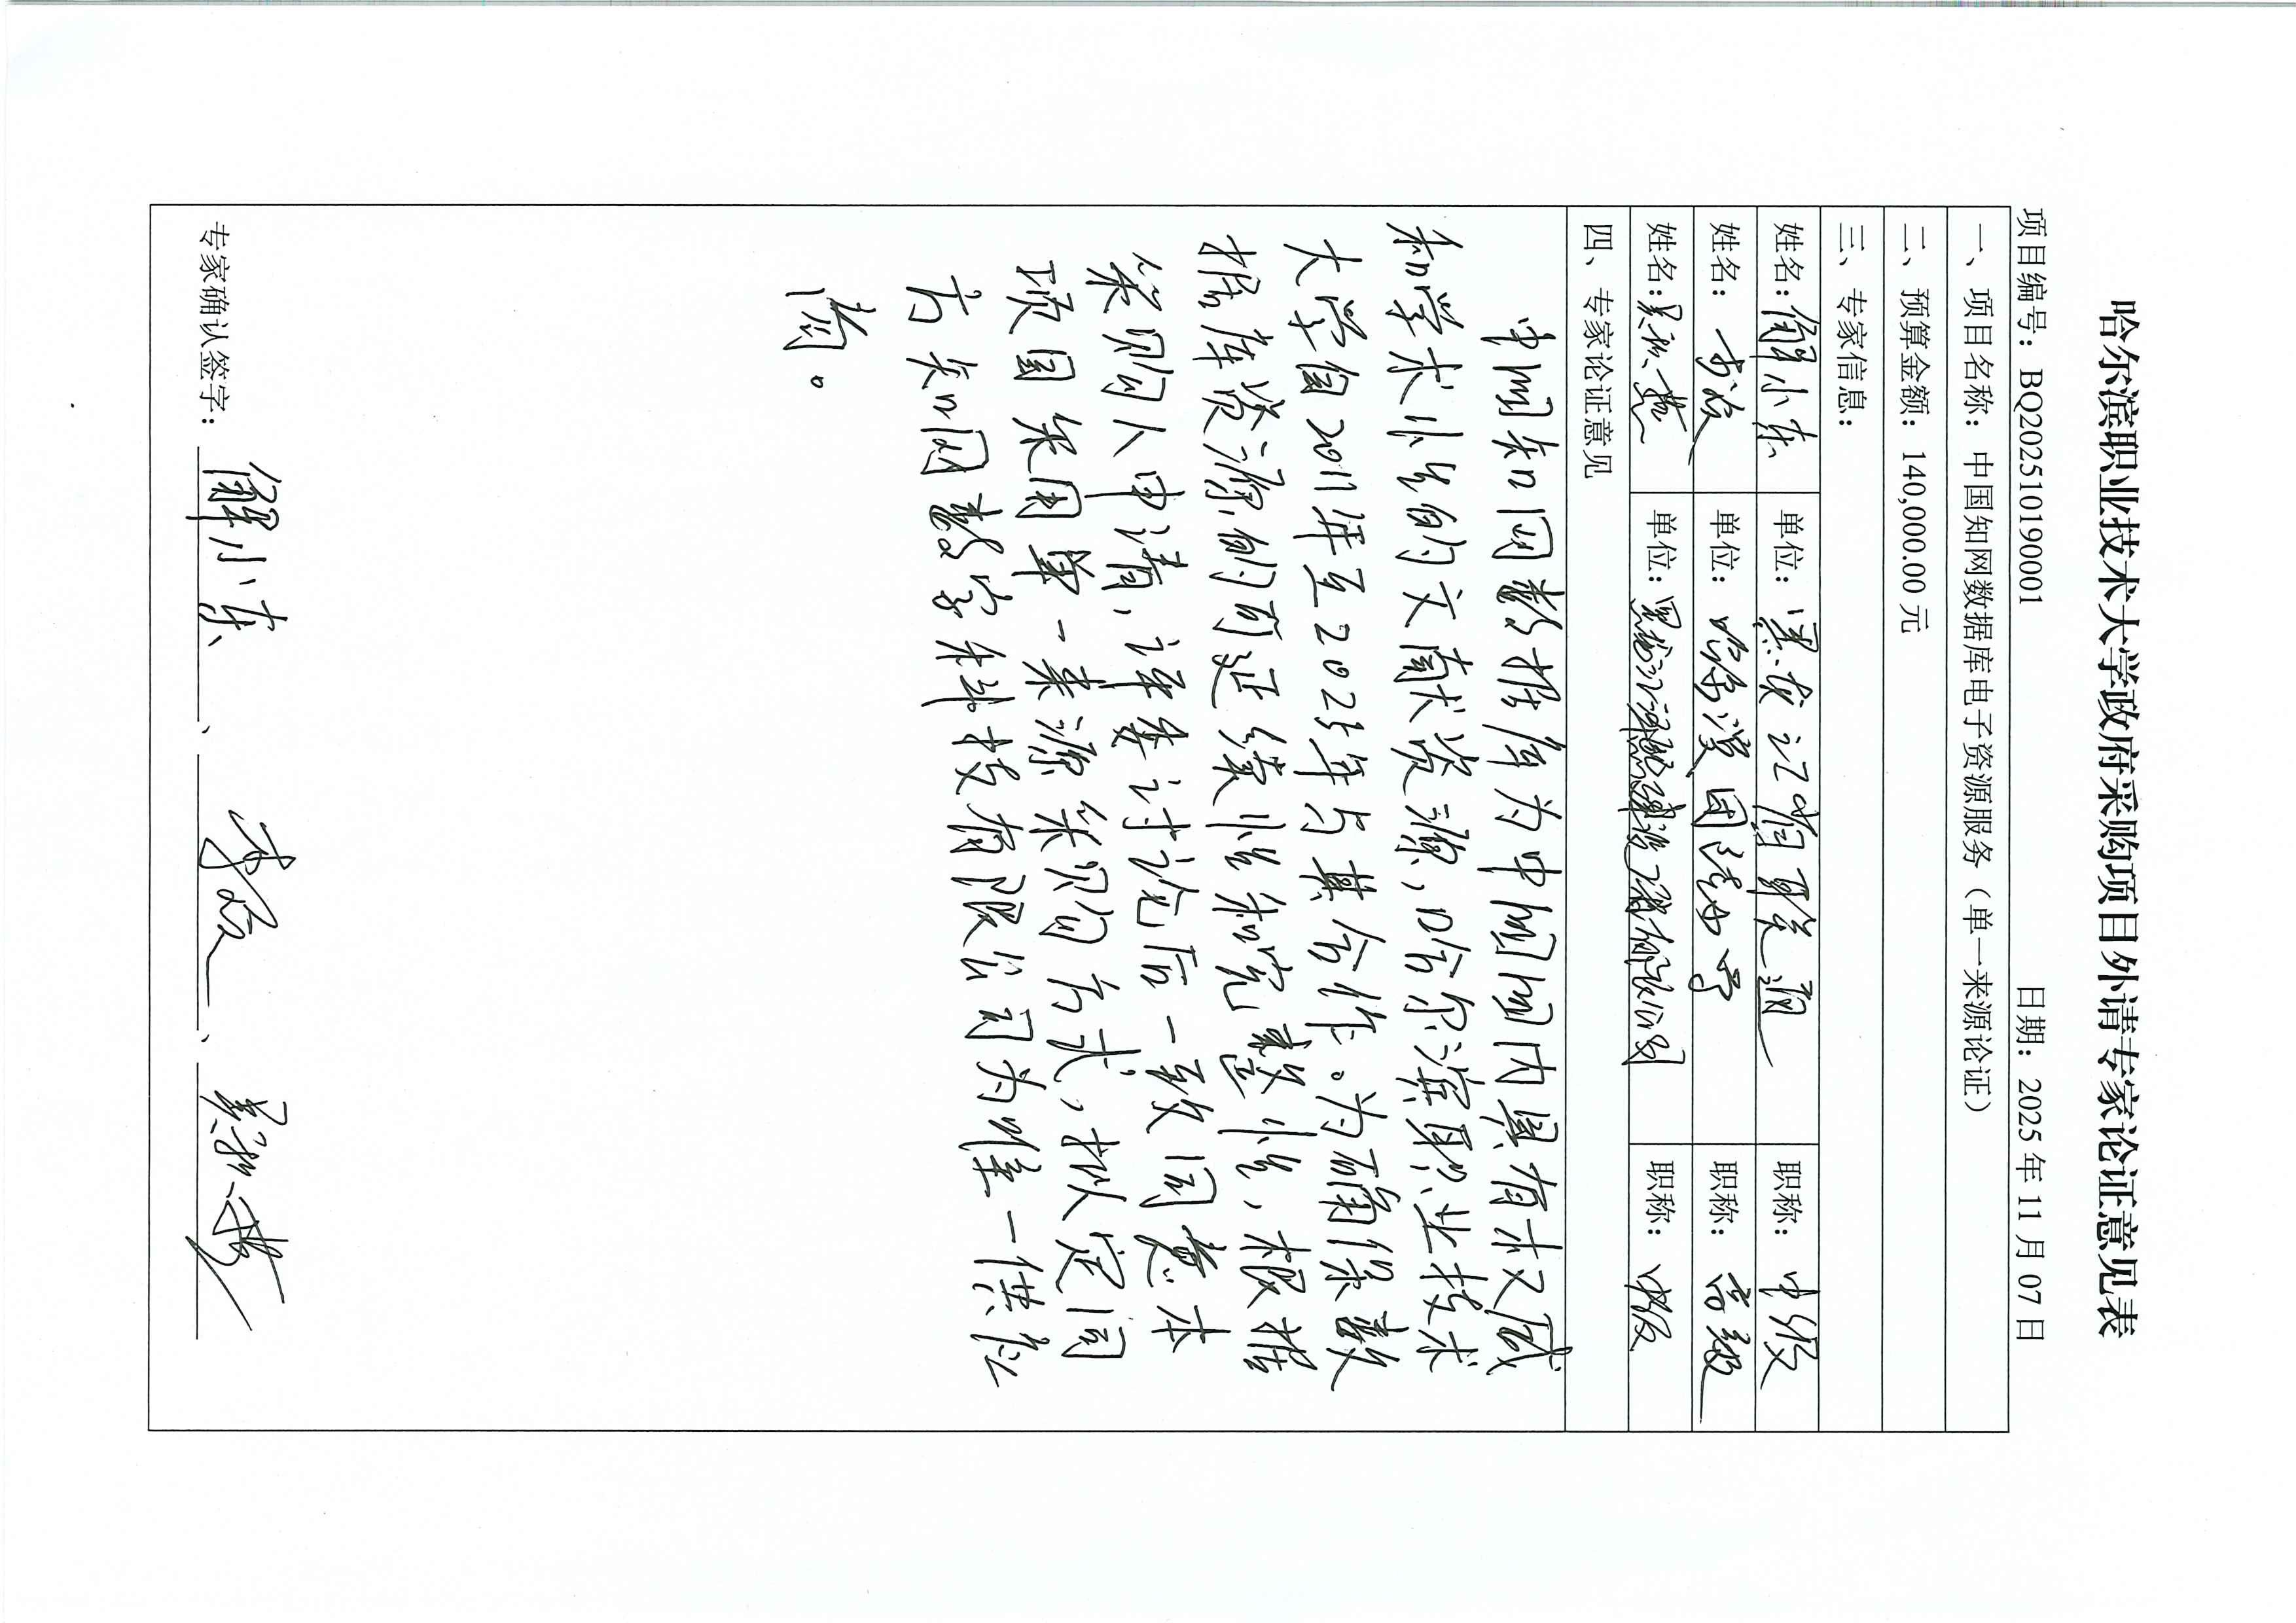 哈尔滨职业技术大学政府采购项目外请专家论证意见表
项目编号：BQ20251019001 日期：2025年11月07日
一、项目名称：中国知网数据库电子资源服务（单一来源论证）
二、预算金额：140,000.00元
三、专家信息：
姓名：解小东 单位：黑龙江省 职称：中级
姓名： 单位：哈尔滨 职称：高级
姓名： 单位：黑龙江 有限公司 职称：中级
四、专家论证意见
中国知网数据库为中国国内具有权威
和学术性的文献资源，哈尔滨职业技术
大学自2011年至2025年与其合作。为确保数
据库资源的可延续性和完整性，根据
采购人申请，评委讨论后一致同意本
项目采用单一来源采购方式，拟定同
方知网数字科技有限公司为唯一供应
商。
专家确认签字：解小东、、